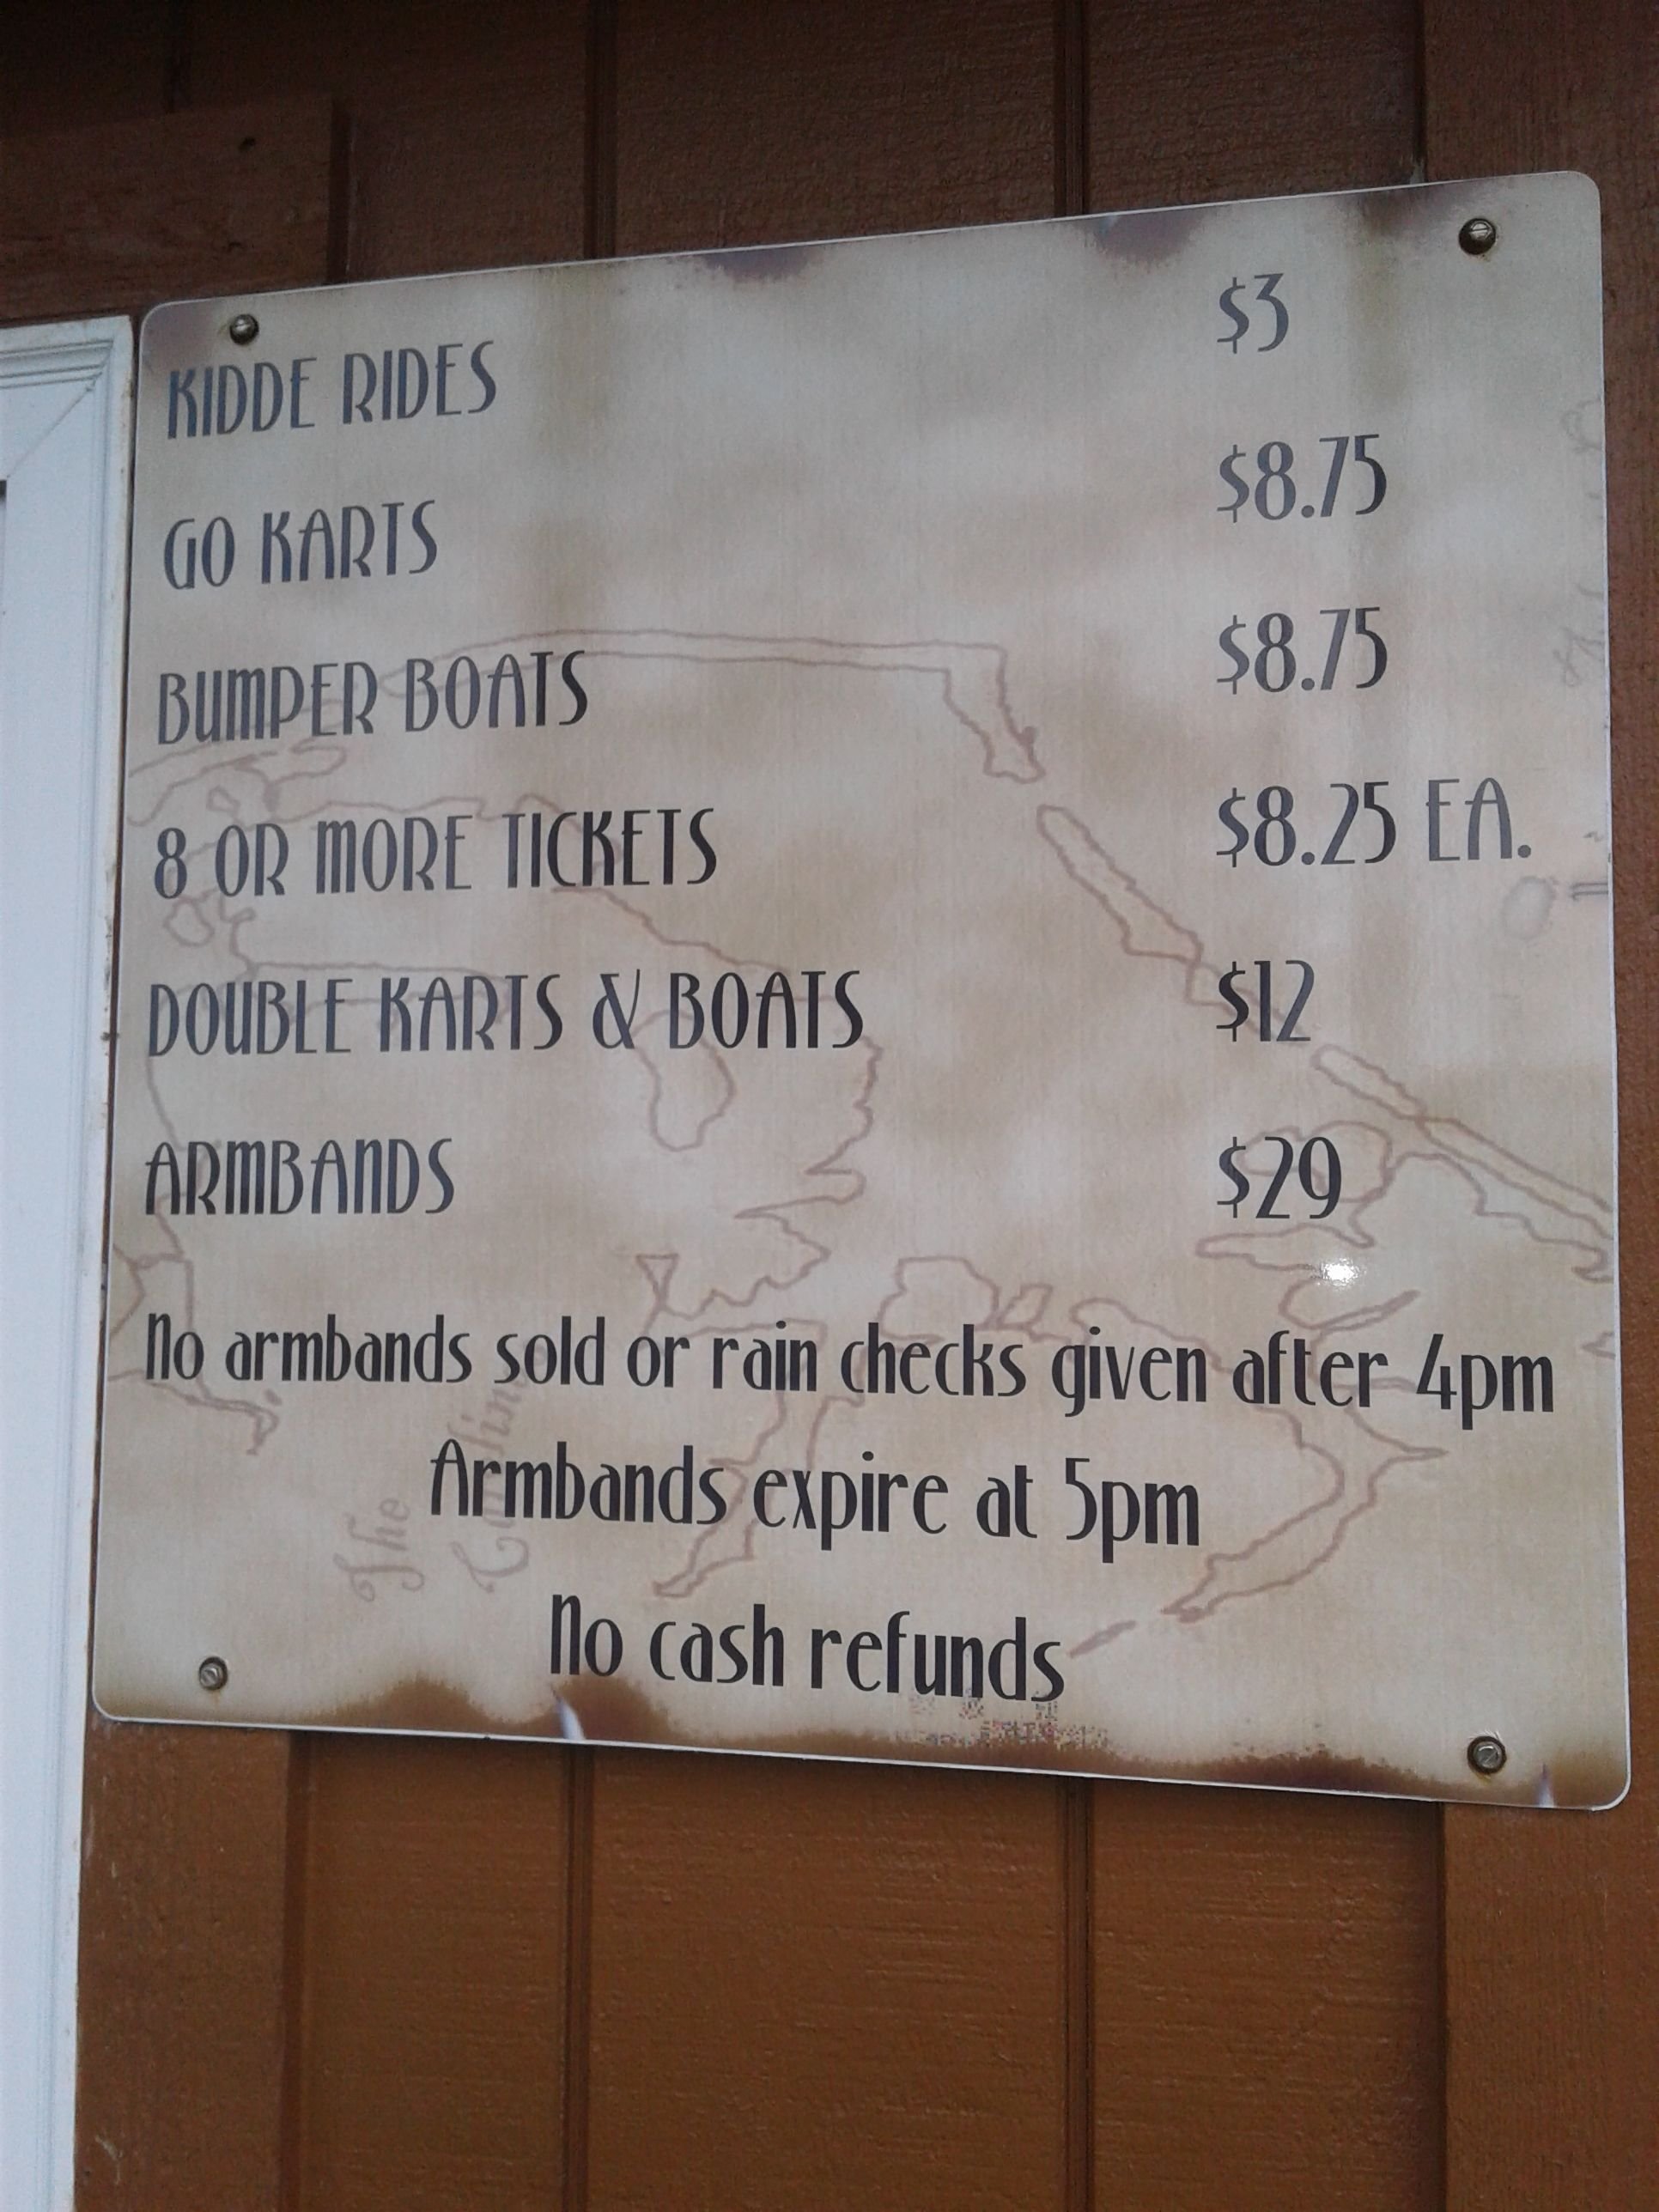 KIDDE RIDES $3
GO KARTS $8.75
BUMPER BOATS $8.75
8 OR MORE TICKETS $8.25 EA.
DOUBLE KARTS & BOATS $12
ARMBANDS $29
No armbands sold or rain checks given after 4pm
Armbands expire at 5pm
No cash refunds
The